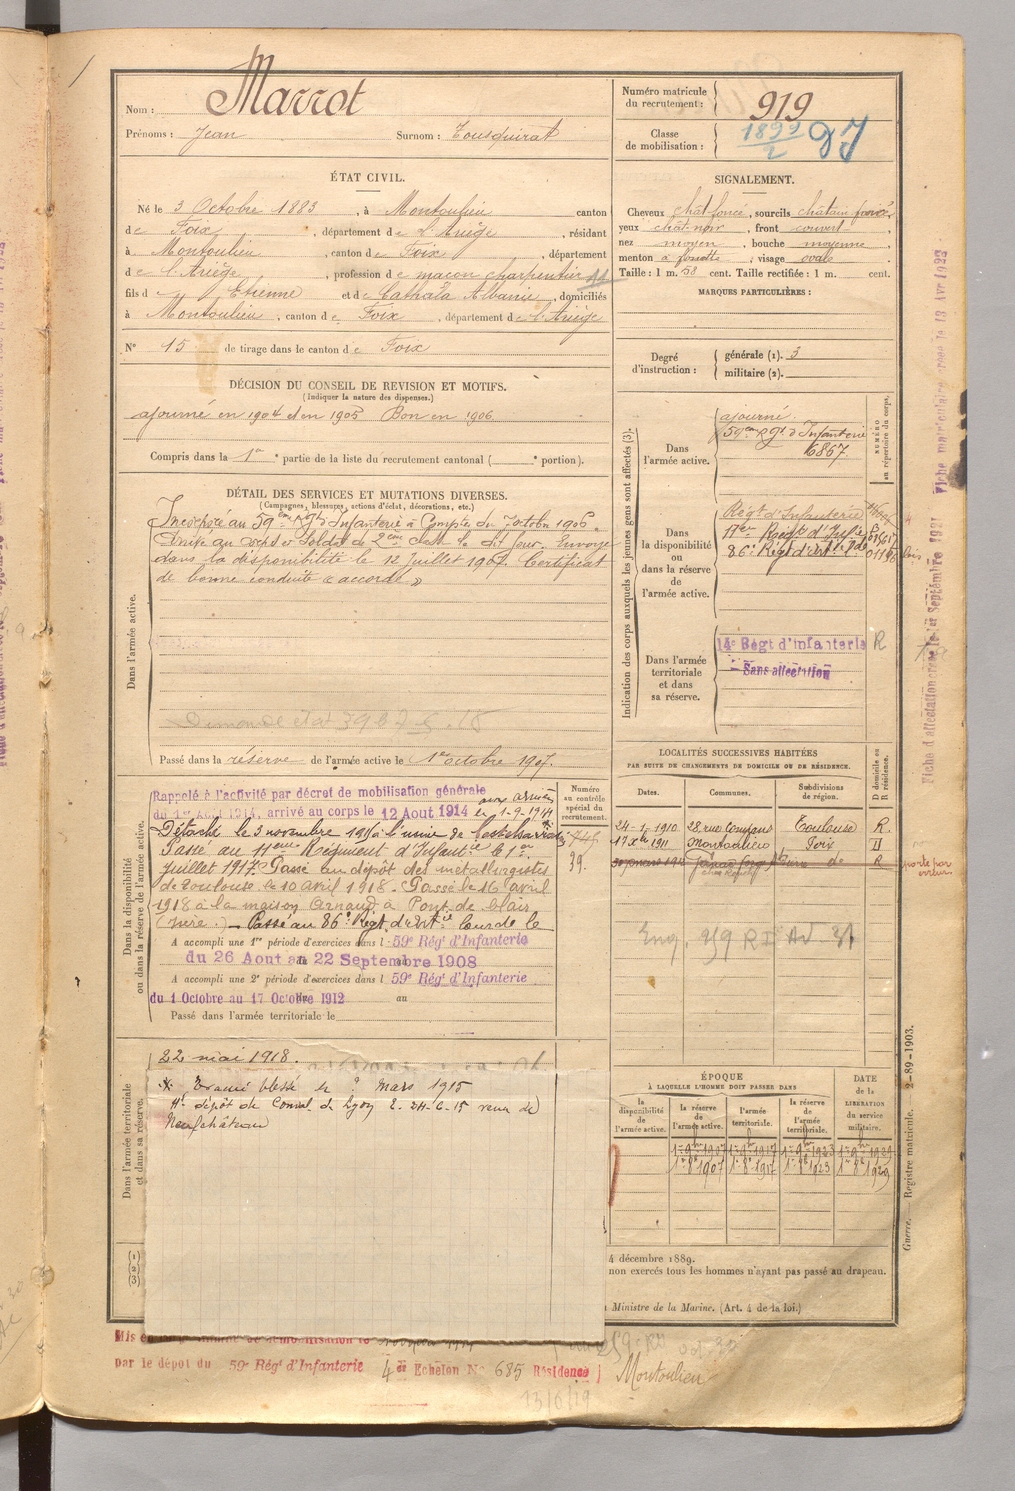 Nom : Marrot
Prénoms : Jean Surnom : Tousquirat
Numéro matricule du recrutement : 919
Classe de mobilisation : 1899/2 97
ÉTAT CIVIL.
Né le 3 Octobre 1883, à Montoulieu canton
de Foix, département de l'Ariège, résidant
à Montoulieu, canton de Foix, département
de l'Ariège, profession de maçon charpentier
fils d'Etienne et de Cathala Albanie, domiciliés
à Montoulieu, canton de Foix, département de l'Ariège
N° 15 de tirage dans le canton de Foix
SIGNALEMENT.
Cheveux chât foncé, sourcils châtain foncé,
yeux chât-noir, front couvert,
nez moyen, bouche moyenne,
menton à fossette, visage ovale
Taille : 1 m. 58 cent. Taille rectifiée : 1 m. cent.
MARQUES PARTICULIÈRES :
Degré d'instruction : générale (1). 3
militaire (2).
DÉCISION DU CONSEIL DE REVISION ET MOTIFS.
(Indiquer la nature des dispenses.)
ajourné en 1904 et en 1905 Bon en 1906
Compris dans la 1re partie de la liste du recrutement cantonal ( e portion).
DÉTAIL DES SERVICES ET MUTATIONS DIVERSES.
(Campagnes, blessures, actions d'éclat, décorations, etc.)
Dans l'armée active.
Incorporé au 59ème Rgt d'Infanterie à Compter du 7 octobre 1906.
Arrivé au Corps et Soldat de 2ème classe le dit jour. Envoyé
dans la disponibilité le 12 Juillet 1907. Certificat
de bonne conduite « accordé »
Passé dans la réserve de l'armée active le 1er octobre 1907.
Indication des corps auxquels les jeunes gens sont affectés (3).
NUMÉRO au répertoire du corps.
Dans l'armée active.
ajourné
59em Rgt d'Infanterie
6867
Dans la disponibilité ou dans la réserve de l'armée active.
Régt d'Infanterie
11er Régt d'Infie
86e Régt d'Artie
Dans l'armée territoriale et dans sa réserve.
14e Régt d'Infanterie R
Sans affectation
Fiche matriculaire créée le 18 Avr 1923
Fiche d'affectation créée le 1er Septembre 1921
Dans la disponibilité ou dans la réserve de l'armée active.
Numéro au contrôle spécial du recrutement.
Rappelé à l'activité par décret de mobilisation générale
du 1er Août 1914, arrivé au corps le 12 Aout 1914 aux armées le 1-9-1914
Détaché le 3 novembre 1915 à l'usine de Castelsarrasin
Passé au 11eme Régiment d'Infantie le 1er
juillet 1917. Passé au dépôt des métallurgistes
de Toulouse le 10 avril 1918. Passé le 16 avril
1918 à la maison Arnaud à Pont de Claix
(Isère). — Passé au 86e Régt d'Artie lourde le
39.
A accompli une 1re période d'exercices dans l 59e Régt d'Infanterie
du 26 Aout au 22 Septembre 1908
A accompli une 2e période d'exercices dans l 59e Régt d'Infanterie
du 1 Octobre au 17 Octobre 1912 au
Passé dans l'armée territoriale le
LOCALITÉS SUCCESSIVES HABITÉES
PAR SUITE DE CHANGEMENTS DE DOMICILE OU DE RÉSIDENCE.
Dates. Communes. Subdivisions de région. D domicile ou R résidence.
24-1-1910 28, rue Conflans Toulouse R.
17 Xbre 1911 Montoulieu Foix D
porté par erreur
Dans l'armée territoriale et dans sa réserve.
22 mai 1918.
* Evacué blessé le ? Mars 1915
Ht dépôt de Conval de Lyon E. 24-6-15 venu de
Neufchâteau
ÉPOQUE
À LAQUELLE L'HOMME DOIT PASSER DANS
la disponibilité de l'armée active. la réserve de l'armée active. l'armée territoriale. la réserve de l'armée territoriale.
DATE de la LIBÉRATION du service militaire.
1er 9bre 1907 1er 9bre 1917 1er 9bre 1923 1er 9bre 1929
1er 8bre 1907 1er 8bre 1917 1er 8bre 1923 1er 8bre 1929
Guerre. — Registre matricule. 2-89-1903.
(1)
(2)
(3)
4 décembre 1889.
non exercés tous les hommes n'ayant pas passé au drapeau.
Ministre de la Marine. (Art. 4 de la loi.)
par le dépôt du 59e Régt d'Infanterie 4er Echelon No 685 Résidence Montoulieu
13/6/19